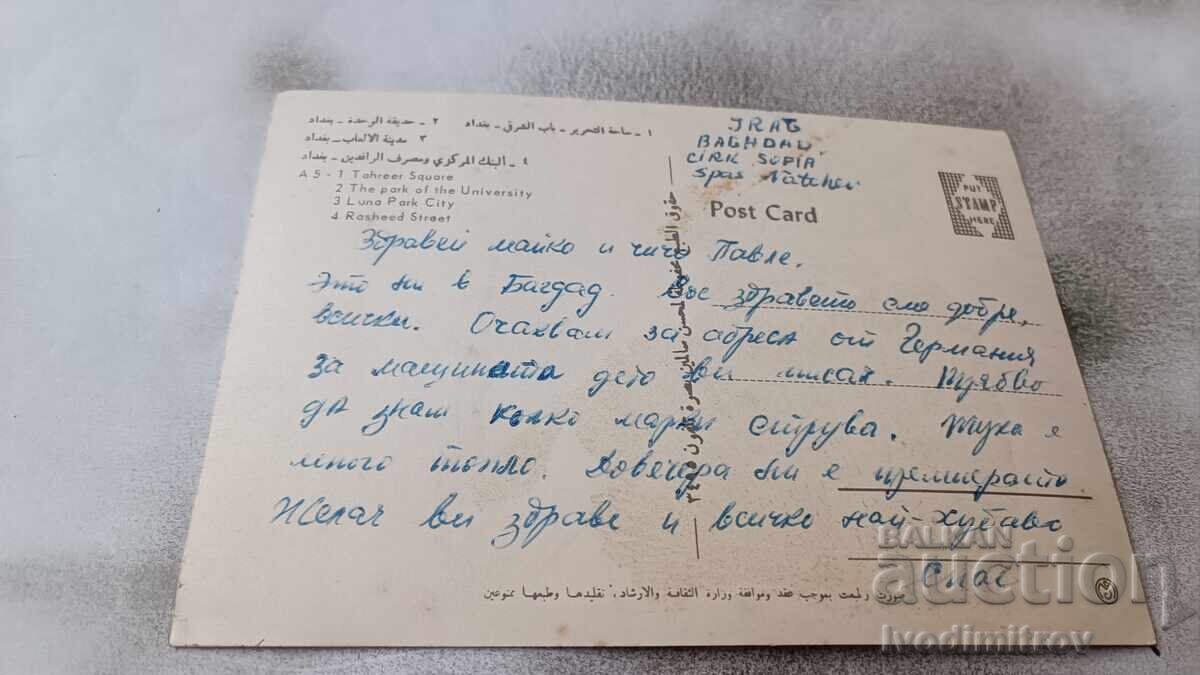 ١ - ساحة التحرير - باب الشرقي - بغداد ٢ - حديقة الوحدة - بغداد
٣ مدينة الالعاب - بغداد
٤ - البنك المركزي ومصرف الرافدين - بغداد
A 5 - 1 Tahreer Square
2 The park of the University
3 Luna Park City
4 Rasheed Street
IRAG
BAGHDAD
CIRK SOFIA
Spas Natchev
Post Card
PUT
STAMP
HERE
Здравей майко и чичо Павле.
Ето ни в Багдад. Със здравето сме добре,
всички. Очаквам за адреса от Германия
за машината дето ви писах. Трябва
да знам колко марки струва. Тука е
много топло. Довечера ни е премиерата.
Желая ви здраве и всичко най-хубаво
Спас
حقوق الطبع محفوظة
صورت وطبعت بموجب عقد وموافقة وزارة الثقافة والارشاد، تقليدها وطبعها ممنوعين
BALKAN
auction
Ivodimitrov